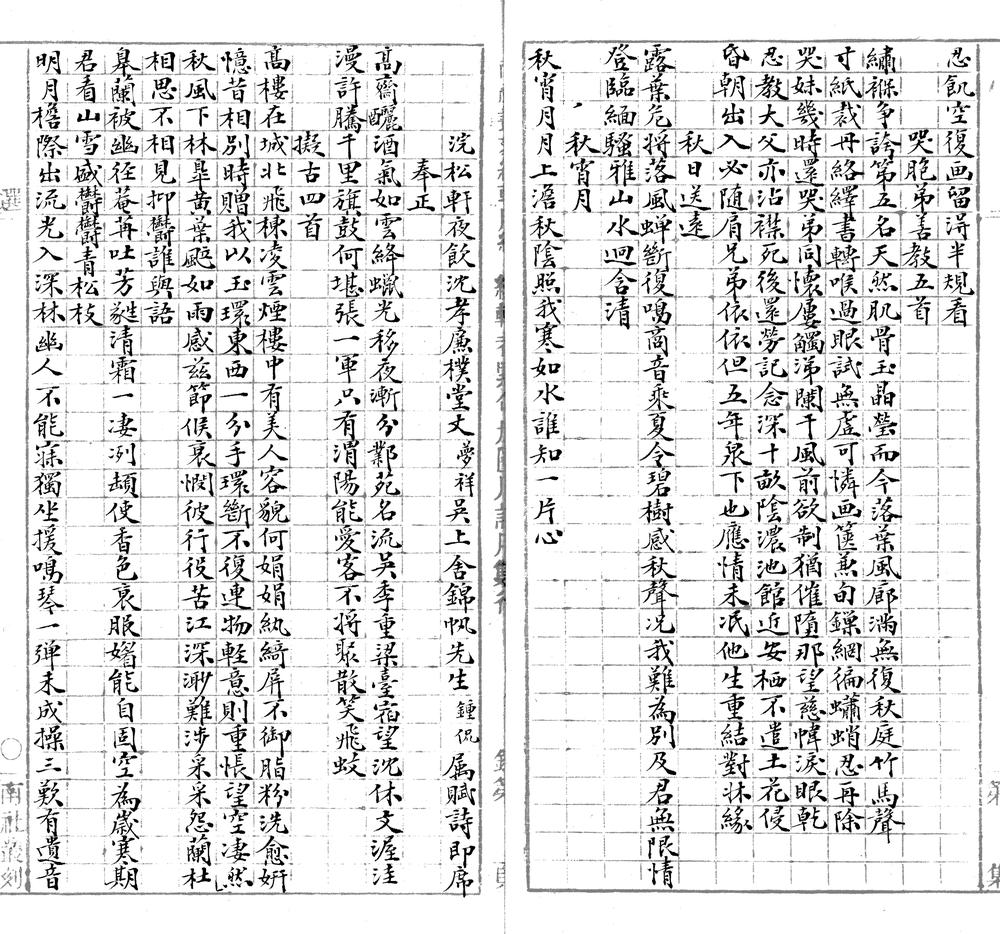 忍飢空復画留得半規看
哭胞弟善教五首
繡褓争誇第五名天然肌骨玉晶瑩而今落葉風廊滿無復秋庭竹馬聲
寸紙裁丹絡繹書轉喉過眼試無虛可憐画篋蕉旬鏁網徧蠨蛸忍再除
哭妹幾時還哭弟同懷屢觸涕闌干風前欲制猶催墮那望慈幃淚眼乾
忍教大父亦沾襟死後還勞記念深十畝陰濃池館近安栖不遣土花侵
昏朝出入必随肩兄弟依依但五年泉下也應情未泯他生重結對牀緣
秋日送遠
露葉危將落風蟬斷復鳴高音乘夏令碧樹感秋聲况我難為別及君無限情
登臨緬騷雅山水迥含清
秋宵月
秋宵月月上澹秋陰照我寒如水誰知一片心
浣松軒夜飲沈孝廉樸堂丈夢祥吳上舍錦帆先生鍾侃属賦詩即席
奉正
高齋釃酒氣如雲絡蠟光移夜漸分鄴苑名流吳季重梁臺宿望沈休文渥洼
漫許騰千里旗鼓何堪張一軍只有渭陽能愛客不將聚散笑飛蚊
擬古四首
高樓在城北飛棟凌雲煙樓中有美人容貌何娟娟紈綺屏不御脂粉洗愈妍
憶昔相別時贈我以玉環東西一分手環斷不復連物輕意則重悵望空凄然
秋風下林臯黄葉颭如雨感兹節候哀憫彼行役苦江深渺難涉采采怨蘭杜
相思不相見抑欝誰與語
皋蘭被幽徑菴苒吐芳蕤清霜一凄冽頓使香色衰服媚能自固空為歲寒期
君看山雪盛欝欝青松枝
明月檐際出流光入深林幽人不能寐獨坐援鳴琴一彈未成操三歎有遺音
選
〇
南社叢刻
第
集